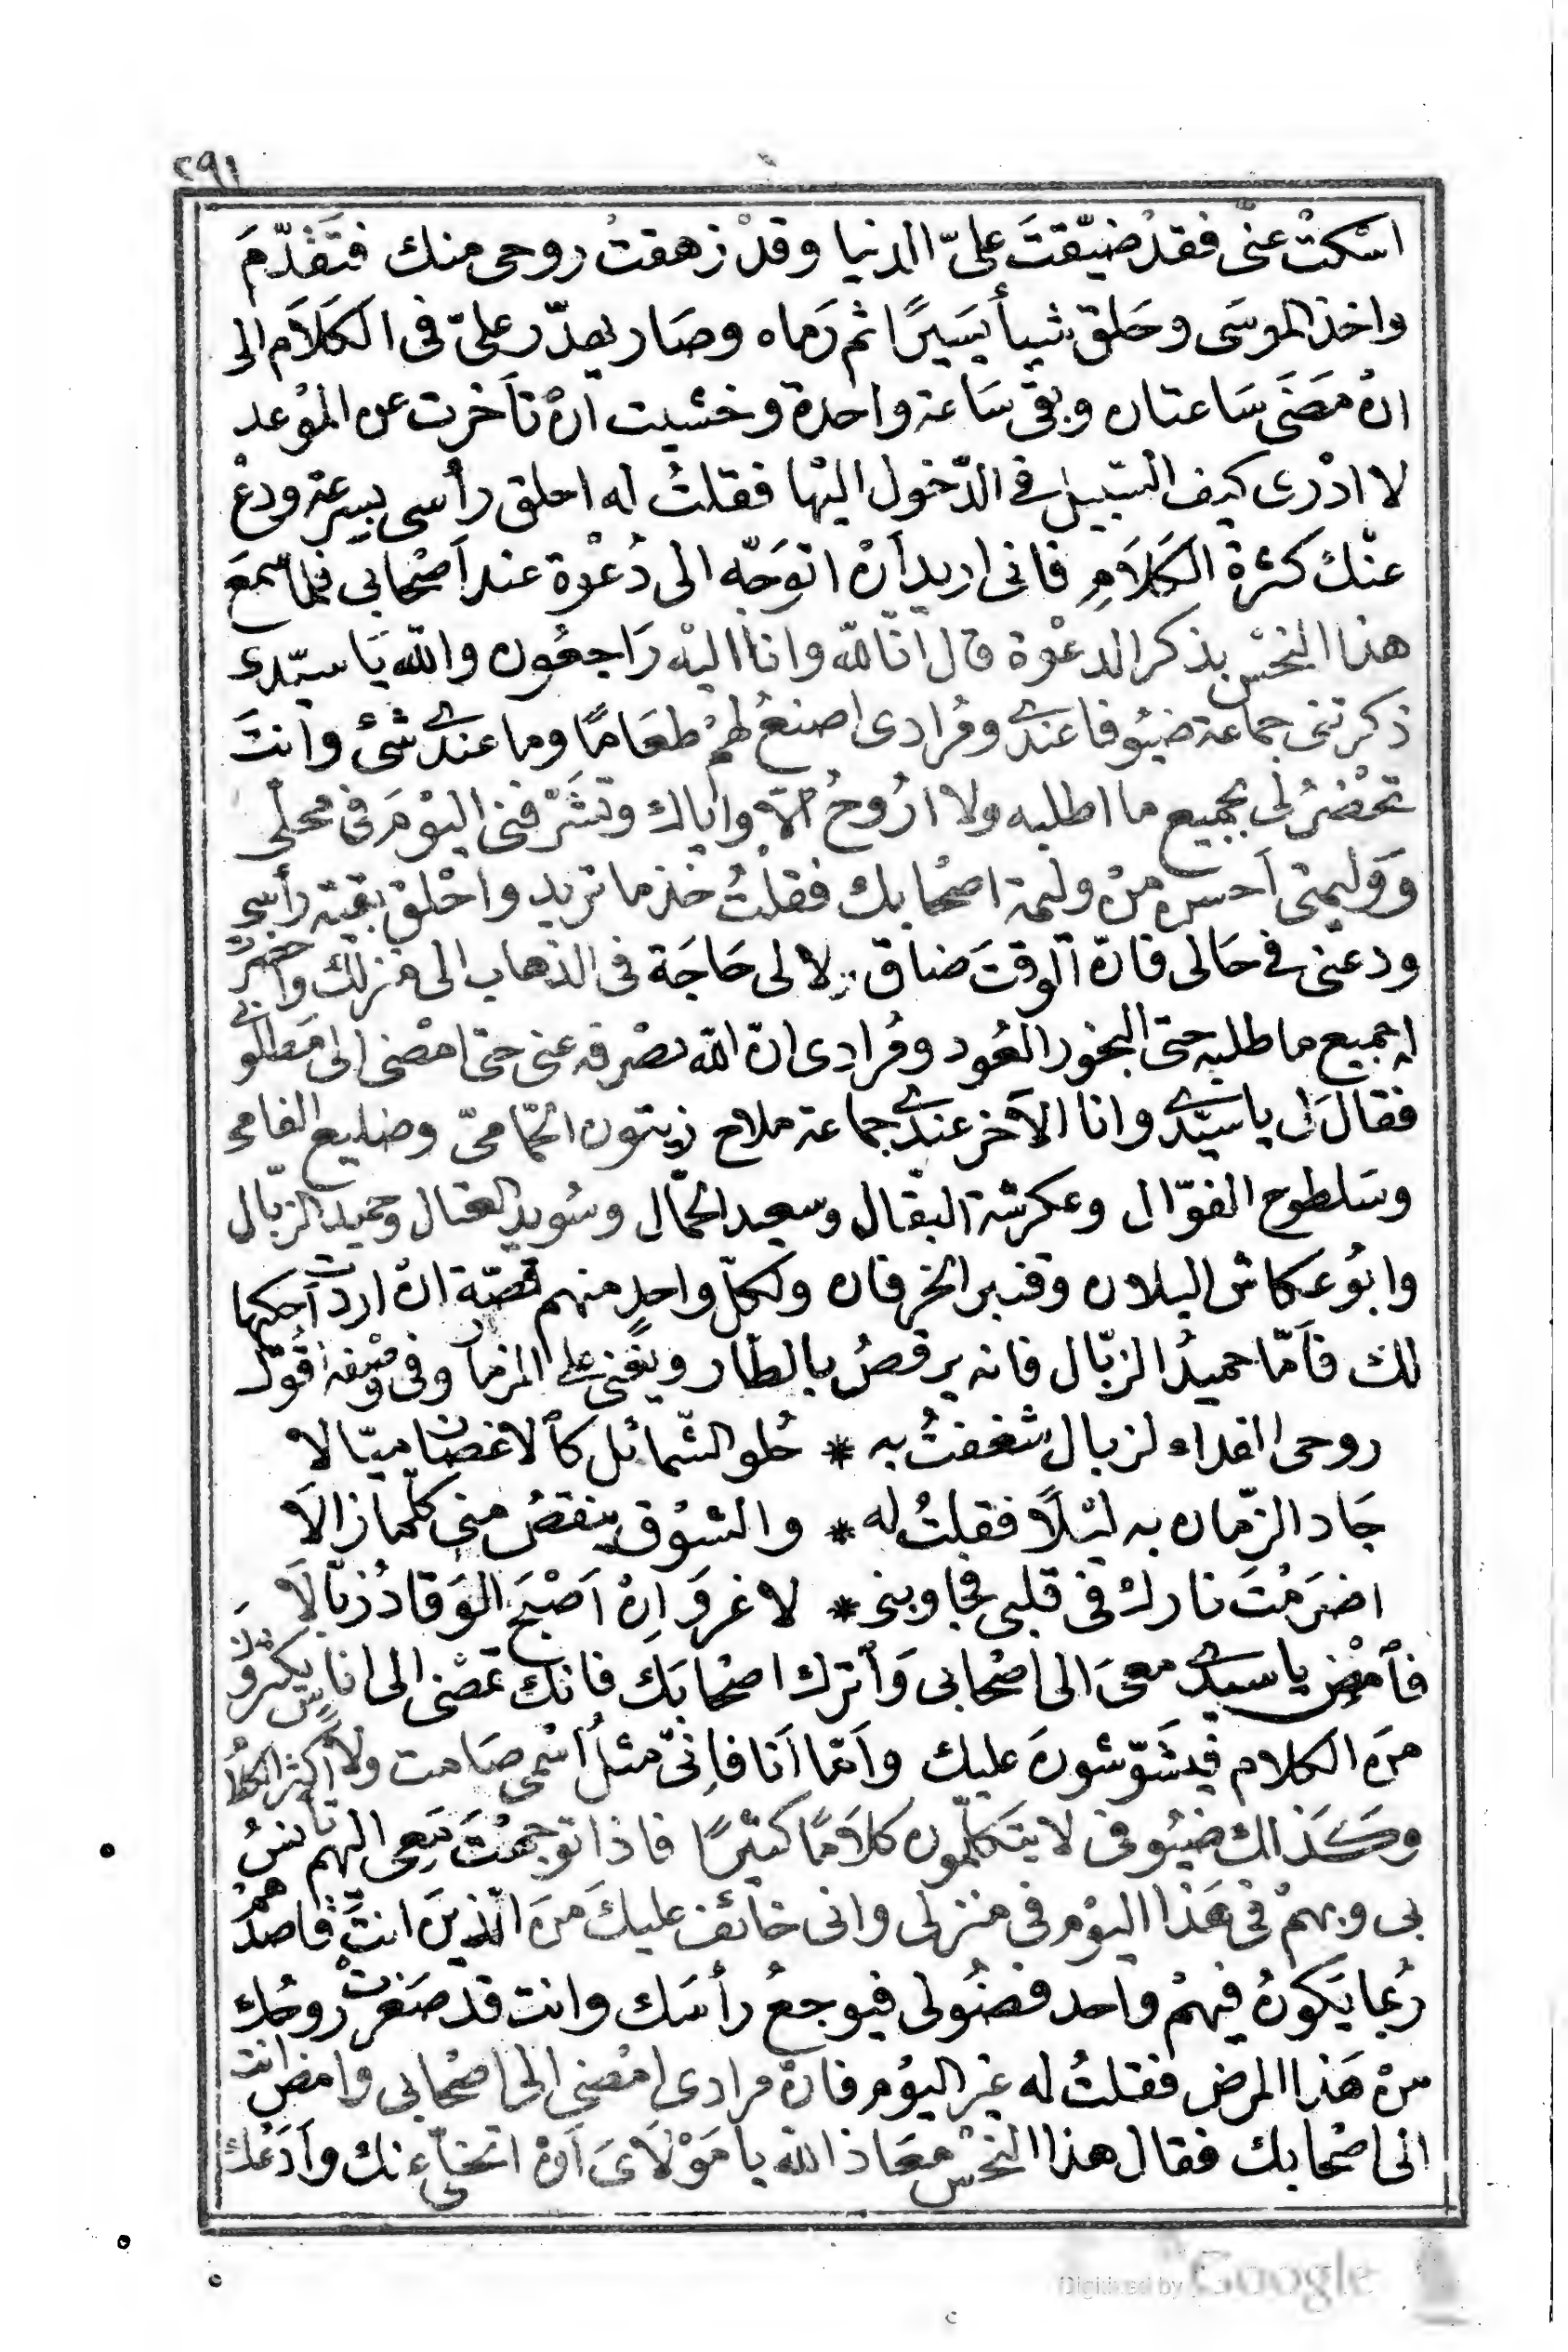 ٢٩١
اسْكتْ عنّى فقدْ ضيّقتَ علىّ الدنيا وقدْ زهقتْ روحى منك فتَقدّمَ
واخذ الموسَى وحَلق شيأ يَسَيرًا ثم رَماه وصَار يهدّر علىّ فى الكلَام الى
انْ مَضَى سَاعتان وبقى سَاعة واحدة وخشيت انْ تأخرت عن الموْعد
لا ادْرى كيف السّبيل فى الدّخول اليْها فقلتُ له احلق رأسى بسرعة ودعْ
عنْك كثرة الكلَامِ فانى اريد اَنْ اتوَجّه الى دُعْوة عند اَصْحابى فلما سْمعَ
هذا النحْس بذكر الدعْوة قال انّا للّه وانا اليْه رَاجعُون واللّه يَا سيّدى
ذكرتنى جماعة ضيُوفا عندى ومُرادى اصنعُ لهمْ طعَامًا وما عندى شئ وانتَ
تحْضرُ لى بجميع ما اطلبه ولا ارُوحُ الا واياك وتشَرْفنى اليْومَ فى محلى
وَوَليمتى اَحسن منْ وليمة اصْحابك فقلْتُ خذ ما تريد واحْلق بقية رأسى
ودعنى فى حَالى فانّ الوقتَ ضاق لا لى حَاجَة فى الذهاب الى منزلك وَاحضرْت
له جميع ما طلبه حتى البخور العُود ومُرادى انّ اللّه يصْرفه عنى حتى امْضى الى مَطلوبى
فقالَ لى يا سيّدى وانا الآخر عندى جماعة ملاح زيتون الحمّامىّ وضليع الفامى
وسَلطوح الفوّال وعكرشة البقّال وسعيد الحمّال وسُويد العتال وحميد الزبّال
وابُو عكاش البلان وقنبر الخرفان ولكلّ واحدٍ منهم قصّة انْ اردت احكيها
لك فاَمّا حميدُ الزبّال فانه يرقصُ بالطّار ويغنى على المزمار وفى وَصْفه أقوْل
روحى الفداء لزبال شغفتُ به * حُلو الشّمائل كالاغصان ميّالا
جَاد الزّمان به ليْلًا فقلتُ له * والشوْق ينقصُ منى كلّما زالَا
اضرَمْتَ نارك فى قلبى فجاوبنى * لا غروَ اِنْ اَصْبَحَ الوَقادُ زبّالَا
فاْمْض يا سيدى معىَ الى اصْحابى وَاْترك اصْحابَك فانك تمضى الى اناس يكثرونَ
منَ الكلام فيشَوّشونَ عليك وأمّا اَنا فاِنىّ مثلُ اسْمى صَامت ولا اكثر الكلام
وكَذالك ضيُوفى لا يتَكلّمون كلَامًا كثيْرًا فاذا توجهْتَ مَعى اليهم تأنسُ
بى وبهمْ فى هَذا اليوْم فى منزلى وانى خائف عليكَ منَ الّذينَ انتَ قاصدهمْ
رُبما يَكونُ فيهمْ واحد فضُولى فيوجعُ رأسَك وانت قد صَغرتْ روحُك
منْ هَذا المرض فقلتُ له غير اليوْم فانّ مرادى امْضى الى اصْحابى وامض انت
الى اصْحابك فقال هذا النحْس معَاذ اللّه يا مَوْلَاىَ اَنْ اتخلّى عنك وأدَعْك
Digitized by Google